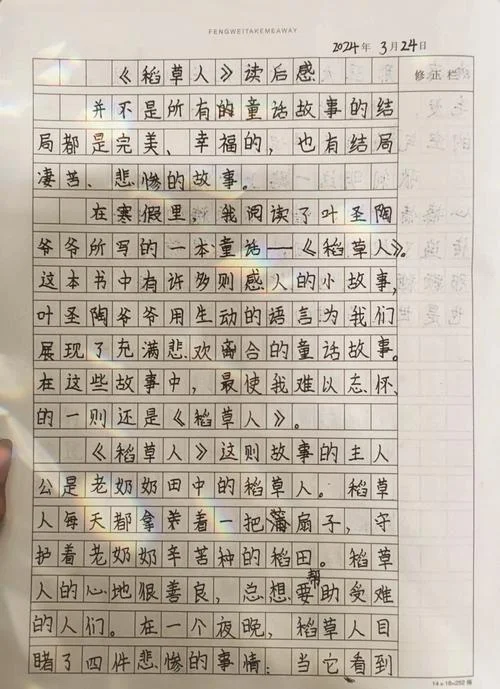 FENGWEITAKEMEAWAY
2024年3月24日
修正栏
《稻草人》读后感
并不是所有的童话故事的结
局都是完美、幸福的,也有结局
凄苦、悲惨的故事。
在寒假里,我阅读了叶圣陶
爷爷所写的一本童话——《稻草人》。
这本书中有许多则感人的小故事,
叶圣陶爷爷用生动的语言为我们
展现了充满悲欢离合的童话故事。
在这些故事中,最使我难以忘怀、
的一则还是《稻草人》。
《稻草人》这则故事的主人
公是老奶奶田中的稻草人。稻草
人每天都拿着一把蒲扇子,守
护着老奶奶辛苦种的稻田。稻草
人的心地很善良,总想要帮助受难
的人们。在一个夜晚,稻草人目
睹了四件悲惨的事情:当它看到
14×18=252格